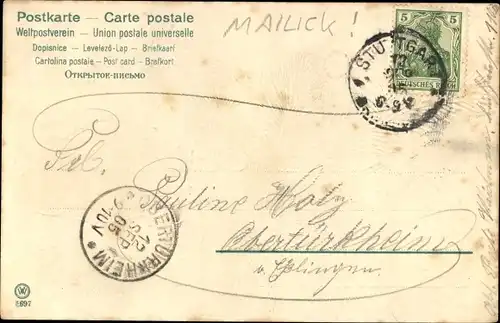 Postkarte — Carte postale
Weltpostverein — Union postale universelle
Dopisnice — Levelező-Lap — Briefkaart
Cartolina postale — Post card — Brefkort
Открытое письмо
MAILICK!
5 5
DEUTSCHES REICH
STUTTGART
12 SEP
Frl.
Pauline Holz
Obertürkheim
a/Eßlingen
OBERTÜRKHEIM
12 SEP 05
9-10V
W
E697